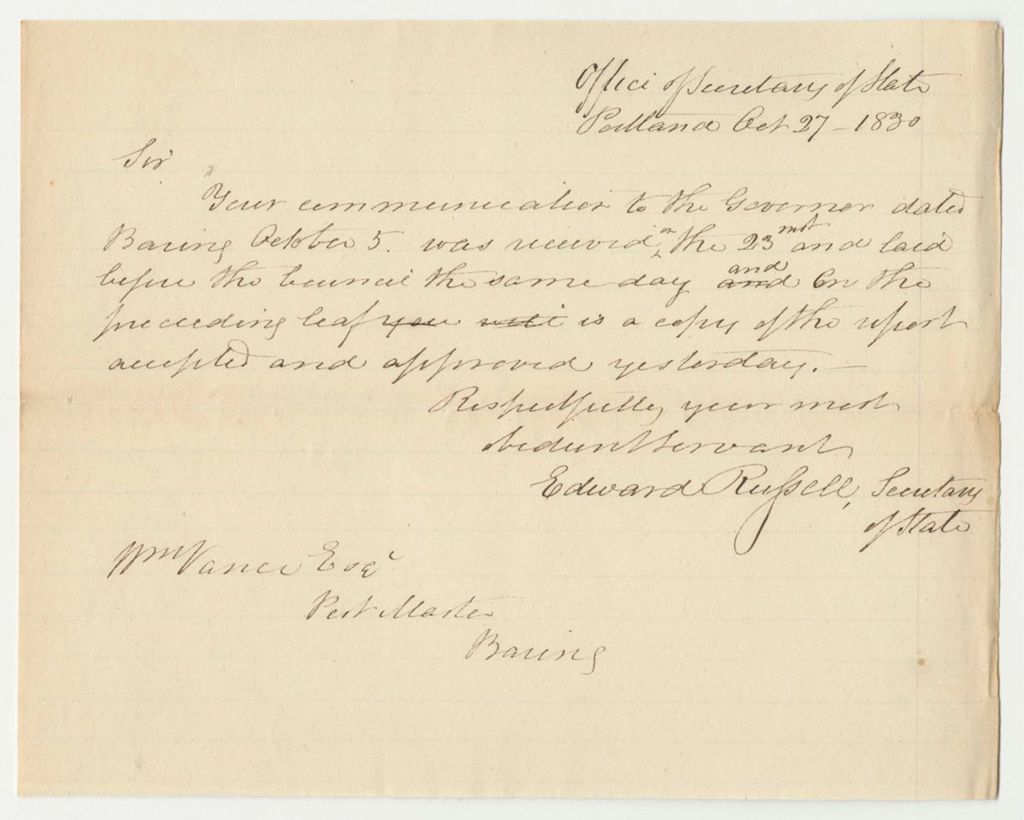 Office of Secretary of State
Portland Oct 27 - 1830
Sir
Your communication to the Governor dated
Baring October 5. was received on the 23 inst and laid
before the Council the same day and and On the
preceeding leaf you will is a copy of the report
accepted and approved yesterday. —
Respectfully your most
obedient servant
Edward Russell, Secretary
of State
Wm Vance Esqr
Post Master
Baring